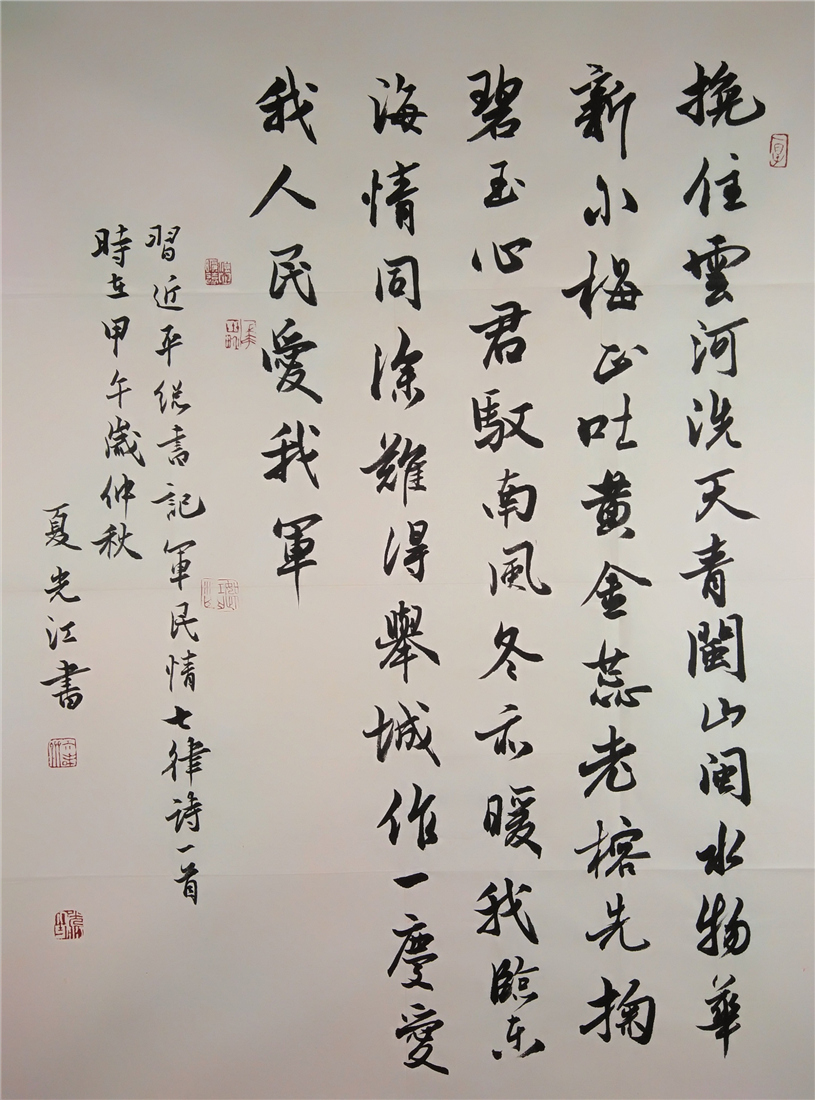 挽住雲河洗天青閩山閩水物華
新小梅正吐黄金蕊老榕先掬
碧玉心君馭南風冬亦暖我臨东
海情同深難得舉城作一慶愛
我人民愛我軍
習近平總書記軍民情七律詩一首
時在甲午歲仲秋
夏光江書